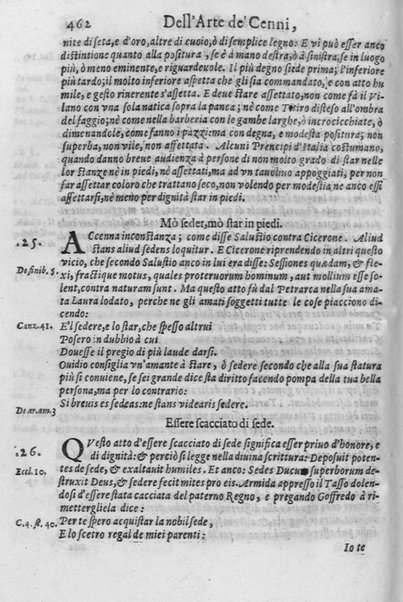 462
Dell'Arte de' Cenni,
nite di seta, e d'oro, altre di cuoio, ò di semplice legno: E vi può esser anco
distintione quanto alla positura, se è à mano destra, ò à sinistra, se in luogo
più, ò meno eminente, e riguardeuole. Il più degno siede prima; l'inferiore
più tardo; il molto inferiore assetta che gli sia commandato, e con atto hu
mile, e gesto riuerente s'assetta. E deue stare assettato, non come fà il Vi-
lano con vna sola natica sopra la panca; nè come Titiro disteso all'ombra
del faggio; nè come nella barberia con le gambe larghe, ò incrocicchiate, ò
dimenandole, come fanno i pazzi: ma con degna, e modesta positura; non
superba, non vile, non affettata. Alcuni Prencipi d'Italia costumano,
quando danno breue audienza à persone di non molto grado di star nelle
lor stanze nè in piedi, nè assettati, ma ad vn tauolino appoggiati, per non
far assettar coloro che trattano seco, non volendo per modestia ne anco essi
assettarsi, nè meno per dignità star in piedi.
Mò seder, mò star in piedi.
.25.
ACcenna inconstanza; come disse Salustio contra Cicerone. Aliud
stans aliud sedens loquitur. E Cicerone riprendendo in altri questo
vicio, che secondo Salustio anco in lui era disse: Sessiones quædam, & fle-
De finib. 5.
xi, fractique motus, quales proteruorum hominum, aut mollium esse so-
lent, contra naturam sunt. Ma questo atto fù dal Petrarca nella sua ama-
ta Laura lodato, perche ne gli amati soggetti tutte le cose piacciono di-
cendo:
Canz. 41.
E'l sedere, e lo star, che spesso altrui
Posero in dubbio à cui
Douesse il pregio di più laude darsi.
Ouidio consiglia vn'amante à stare, ò sedere secondo che alla sua statura
più si conuiene, se sei grande dice sta diritto facendo pompa della tua bella
persona, ma per lo contrario:
De ar. am. 3
Si breuis es sedeas: ne stans videaris sedere.
Essere scacciato di sede.
.26.
QVesto atto d'essere scacciato di sede significa esser priuo d'honore, e
di dignità: & perciò si legge nella diuina scrittura: Deposuit poten-
tes de sede, & exaltauit humiles. Et anco: Sedes Ducum superborum de-
Eccl. 10.
struxit Deus, & sedere fecit mites pro eis. Armida appresso il Tasso dolen-
dosi d'essere stata cacciata del paterno Regno, e pregando Goffredo à ri-
mettergliela dice:
C. 4. st. 40.
Per te spero acquistar la nobil sede,
E lo scetro regal de miei parenti:
Io te